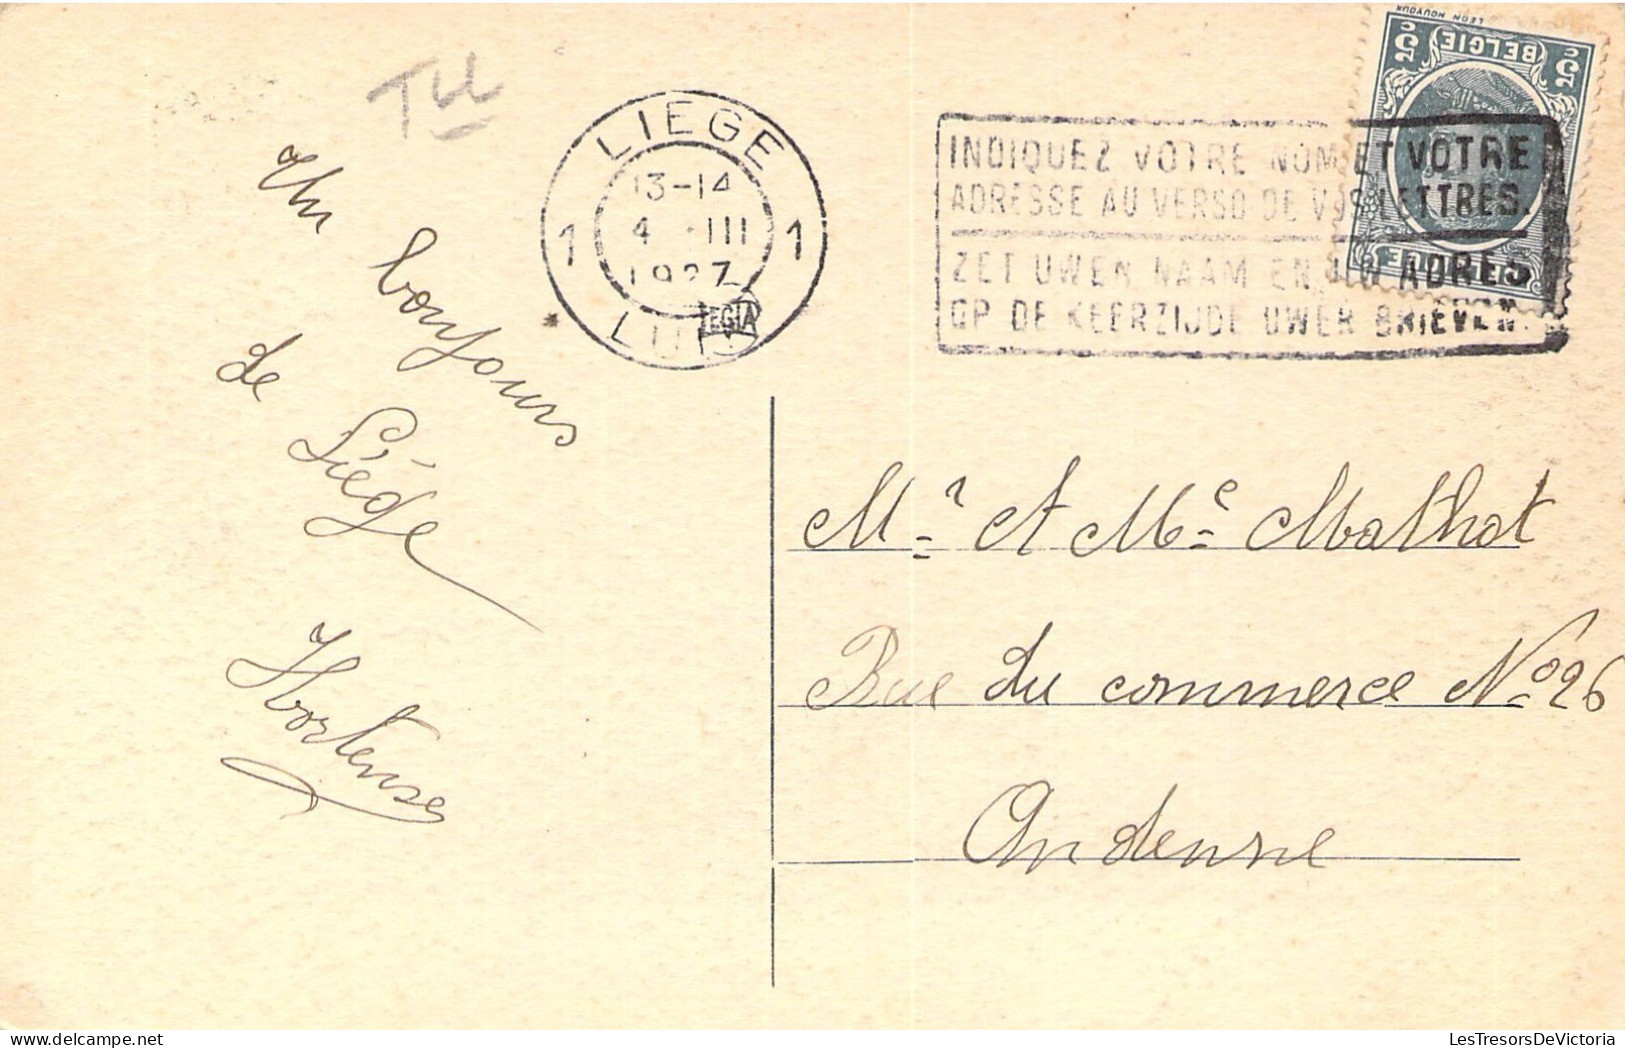 LIEGE
1 13-14 1
4 · III
1927
LUIK
EGIA
INDIQUEZ VOTRE NOM ET VOTRE
ADRESSE AU VERSO DE VOS LETTRES.
ZET UWEN NAAM EN UW ADRES
OP DE KEERZIJDE UWER BRIEVEN.
LEON HOUYOUX
5c BELGIE 5c
BELGIQUE
Un bonjours
de
Liége
Hortense
Mr. et Me. Mathot
Rue du commerce No 26
Andenne
LesTresorsDeVictoria